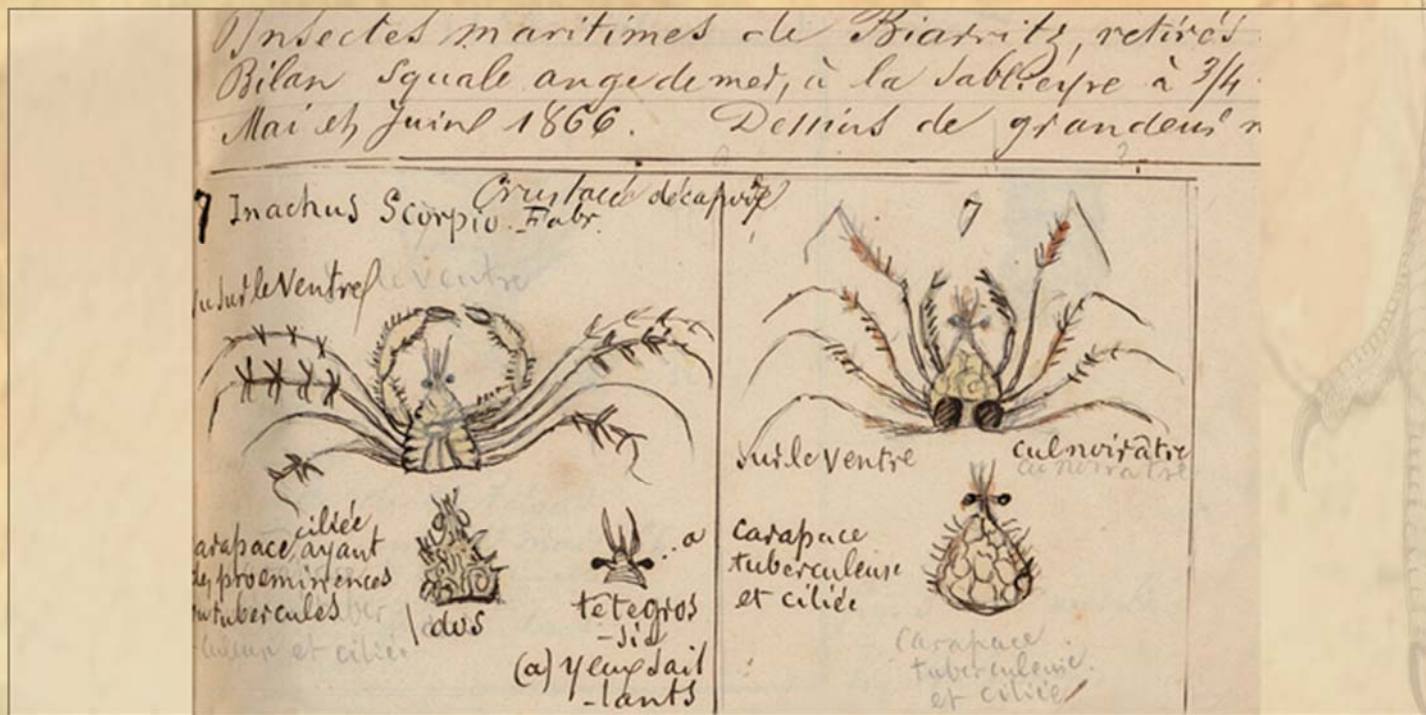 Insectes maritimes de Biarritz, retirés
Bilan squale ange de mer, à la à 3/4
Mai et Juin 1866. Dessins de grandeur
7 Inachus Scorpio. Fabr.
Crustacé décapode
vu sur le Ventre
le ventre
ciliée
carapace ayant
des proeminences
ou tubercules
et ciliée
dos
a
tête gros
-sie
(a) yeux sail
-lants
7
sur le Ventre
cul noirâtre
cul noirâtre
carapace
tuberculeuse
et ciliée
carapace
tuberculeuse.
et ciliée